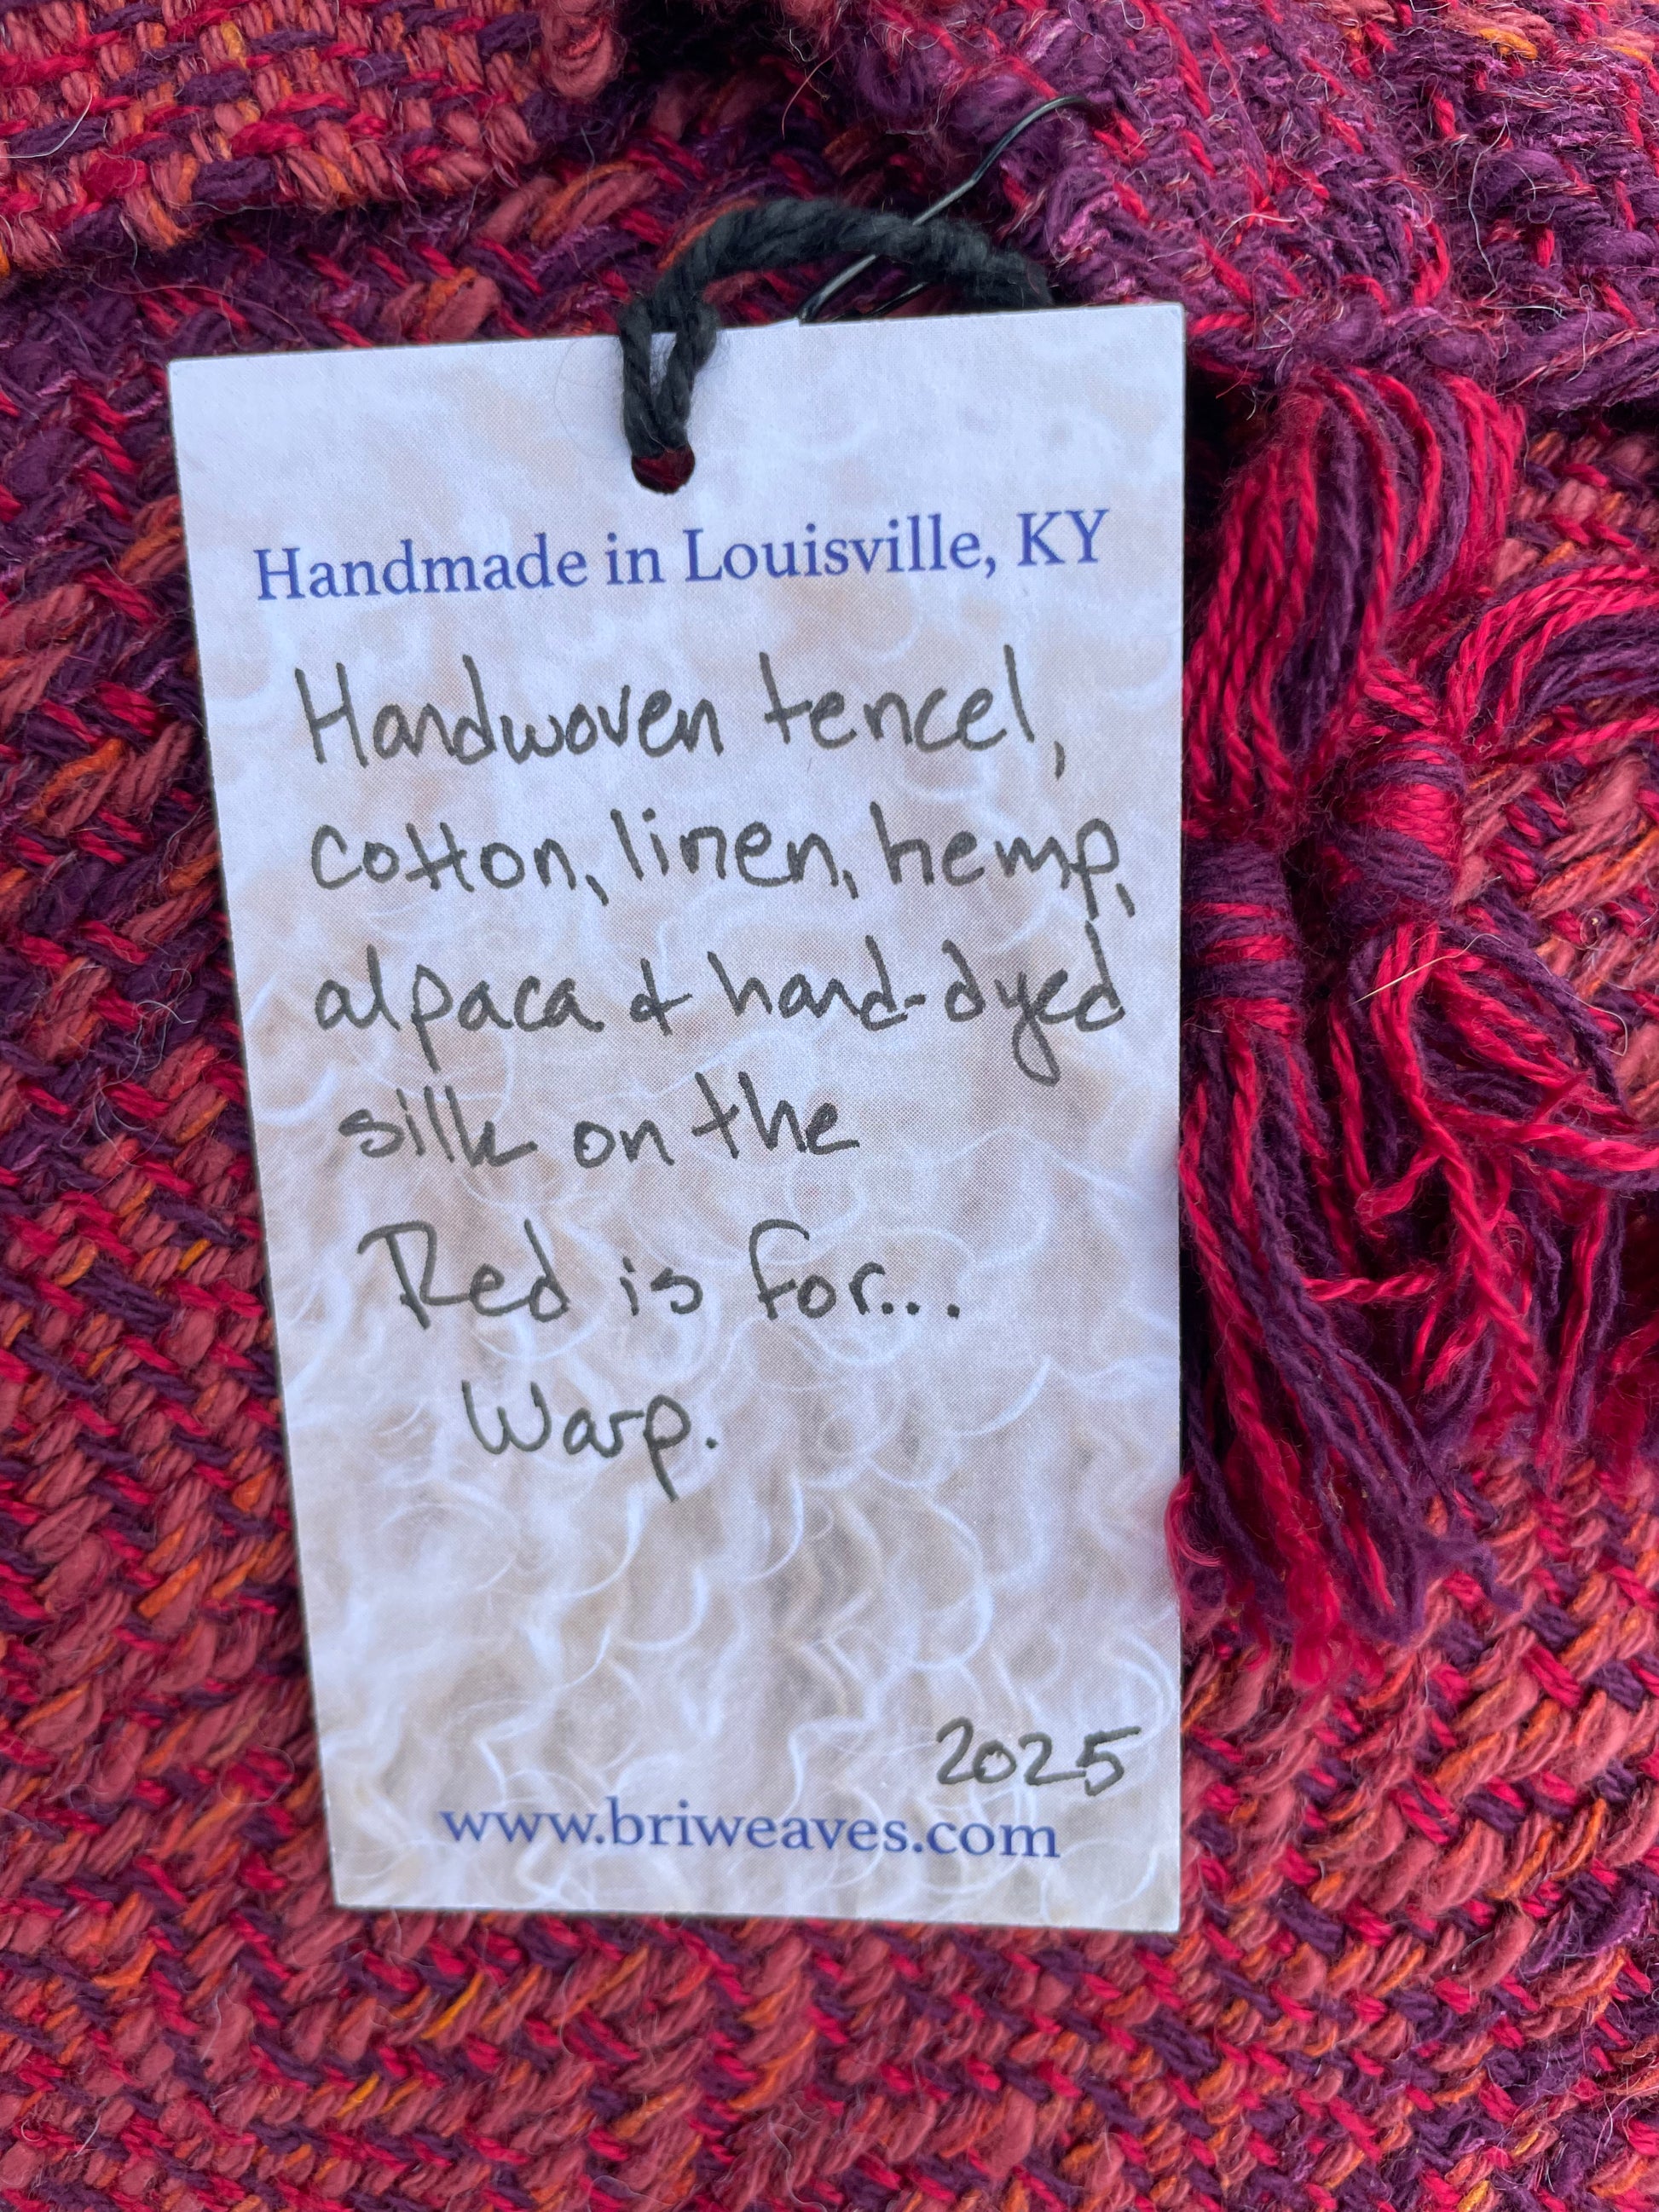 Handmade in Louisville, KY
Handwoven tencel,
cotton, linen, hemp,
alpaca & hand-dyed
silk on the
Red is for...
Warp.
2025
www.briweaves.com